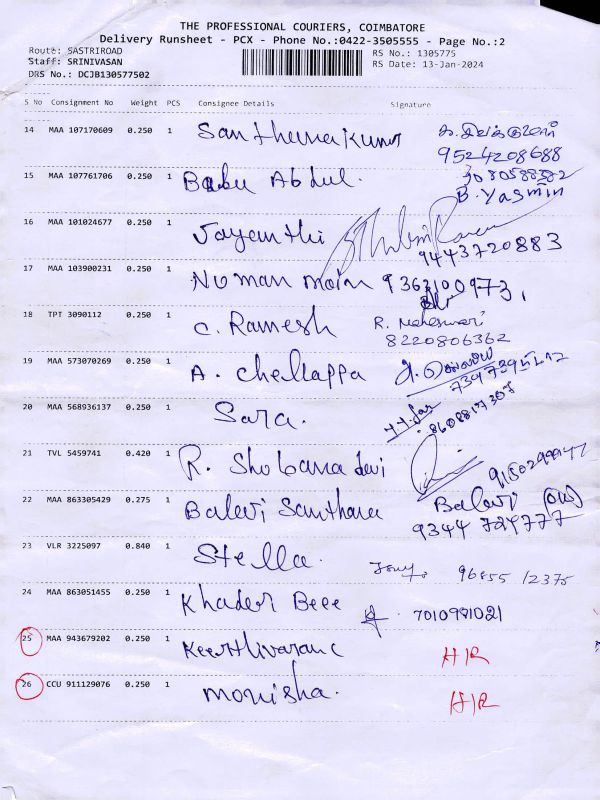 THE PROFESSIONAL COURIERS, COIMBATORE
Delivery Runsheet - PCX - Phone No.:0422-3505555 - Page No.:2
Route: SASTRIROAD RS No.: 1305775
Staff: SRINIVASAN RS Date: 13-Jan-2024
DRS No.: DCJB130577502
S No Consignment No Weight PCS Consignee Details Signature
14 MAA 107170609 0.250 1 Santhana kumar
9524208688
15 MAA 107761706 0.250 1 Babu Abdul.
B. Yasmin
16 MAA 101024677 0.250 1 Jayanthi
9443720883
17 MAA 103900231 0.250 1 Noman moin 9363100973,
18 TPT 3090112 0.250 1 C. Ramesh R. Maheswari
8220806362
19 MAA 573070269 0.250 1 A. Chellappa
20 MAA 568936137 0.250 1 Sara.
21 TVL 5459741 0.420 1 R. Shobana devi
22 MAA 863305429 0.275 1 Balevi Santhana Balevi
9344 724777
23 VLR 3225097 0.840 1 Stella. 96855 12375
24 MAA 863051455 0.250 1 Khader Beee 7010991021
25 MAA 943679202 0.250 1 Keerthivasan C H/R
26 CCU 911129076 0.250 1 monisha. H/R